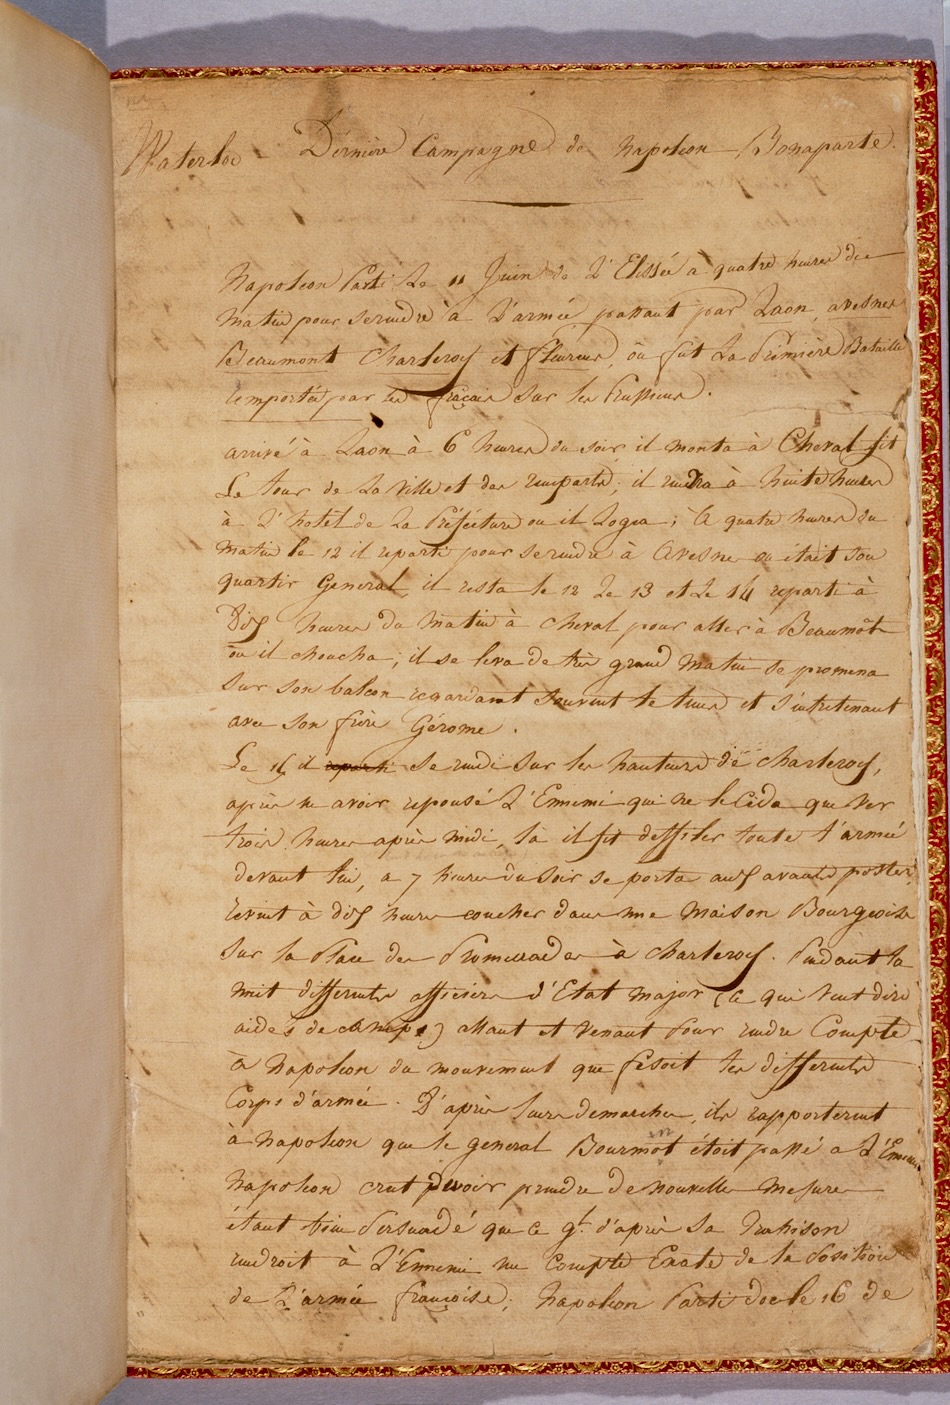 Waterloo Dérniére Campagne de Napoleon Bonaparte.
Napoleon Parti Le 11 Juin de L'Elissée a quatre heures du
Matin pour se rendre à L'armée, passant par Laon, avesnes
Beaumont Charleroy et fleurus, ou fut La Prémiére Bataille
remportée par les français sur les Prussiens.
arrivé à Laon à 6 heures du soir il monta à Cheval fit
Le tour de La Ville et des remparts; il rentra à huite heures
à L'hotel de La Préfecture ou il Logea; a quatre heures du
Matin le 12 il reparti pour se rendre à Avesne ou était son
quartir General, il resta le 12 Le 13 et Le 14 reparti à
Dix heures du Matin à Cheval pour aller à Beaumôt
ou il choucha; il se leva de très grand Matin se promena
sur son balcon regardant souvent le tems et s'intretenant
avec son frére Gérome.
Le 15 il reparti se rendi sur les hauteurs dé Charleroy,
après en avoir repousé L'Ennemi qui ne le Céda que ver
trois heures après midi, là il fit deffiler toute l'armée
devant lui, a 7 heures du soir se porta aux avants postes,
revint à dix heures coucher dans une Maison Bourgeoise
sur la Place des Promenades à Charleroy. Pendant la
nuit differents officiers d'Etat major (ce qui veut dire
aides de camps) allant et venant Pour rendre Compte
à Napoleon du mouvement que fesoit les differents
Corps d'armée. D'après leurs demarches, ils rapporterent
à Napoleon que le general Bourmot étoit passé a L'Ennemi
Napoleon crut devoir prendre de nouvelle mesure
étant bien Persuadé que ce gl. d'après sa Trahison
rendroit à L'Ennemi un Compte Exate de la Position
de L'armée françoise; Napoleon Parti doc le 16 de